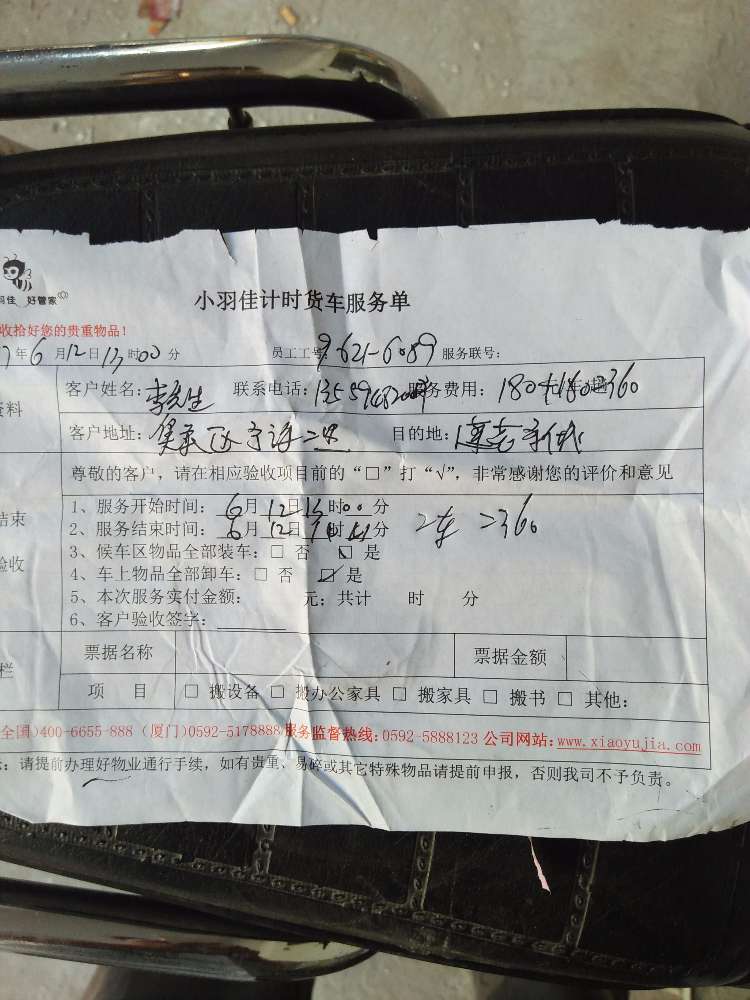 羽佳 好管家
小羽佳计时货车服务单
收拾好您的贵重物品!
7年6月12日13时00分 员工工号: 9621-6089 服务联号:
资料
客户姓名: 李先生 联系电话: 服务费用: 180+180=360
客户地址: 目的地:
尊敬的客户,请在相应验收项目前的“□”打“√”,非常感谢您的评价和意见
结束
验收
1、服务开始时间: 6月12日13时00分
2、服务结束时间: 6月12日 时 分 2车 =360
3、候车区物品全部装车: □ 否 □ 是
4、车上物品全部卸车: □ 否 ☑ 是
5、本次服务实付金额: 元; 共计 时 分
6、客户验收签字:
栏
票据名称 票据金额
项 目 □ 搬设备 □ 搬办公家具 □ 搬家具 □ 搬书 □ 其他:
全国)400-6655-888 (厦门)0592-5178888 服务监督热线:0592-5888123 公司网站:www.xiaoyujia.com
:请提前办理好物业通行手续,如有贵重、易碎或其它特殊物品请提前申报,否则我司不予负责。